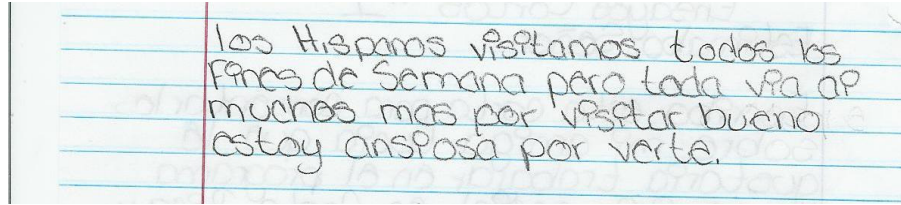 los Hispanos visitamos todos los
fines de Semana pero toda via ai
muchos mas por visitar bueno
estoy ansiosa por verte.